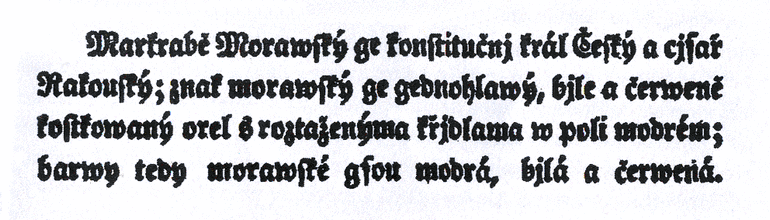 Markrabě Morawský ge konstitučnj král Český a cjsař
Rakouský; znak morawský ge gednohlawý, bjle a čerweně
kostkowaný orel s roztaženýma křjdlama w poli modrém;
barwy tedy morawské gsou modrá, bjlá a čerwená.